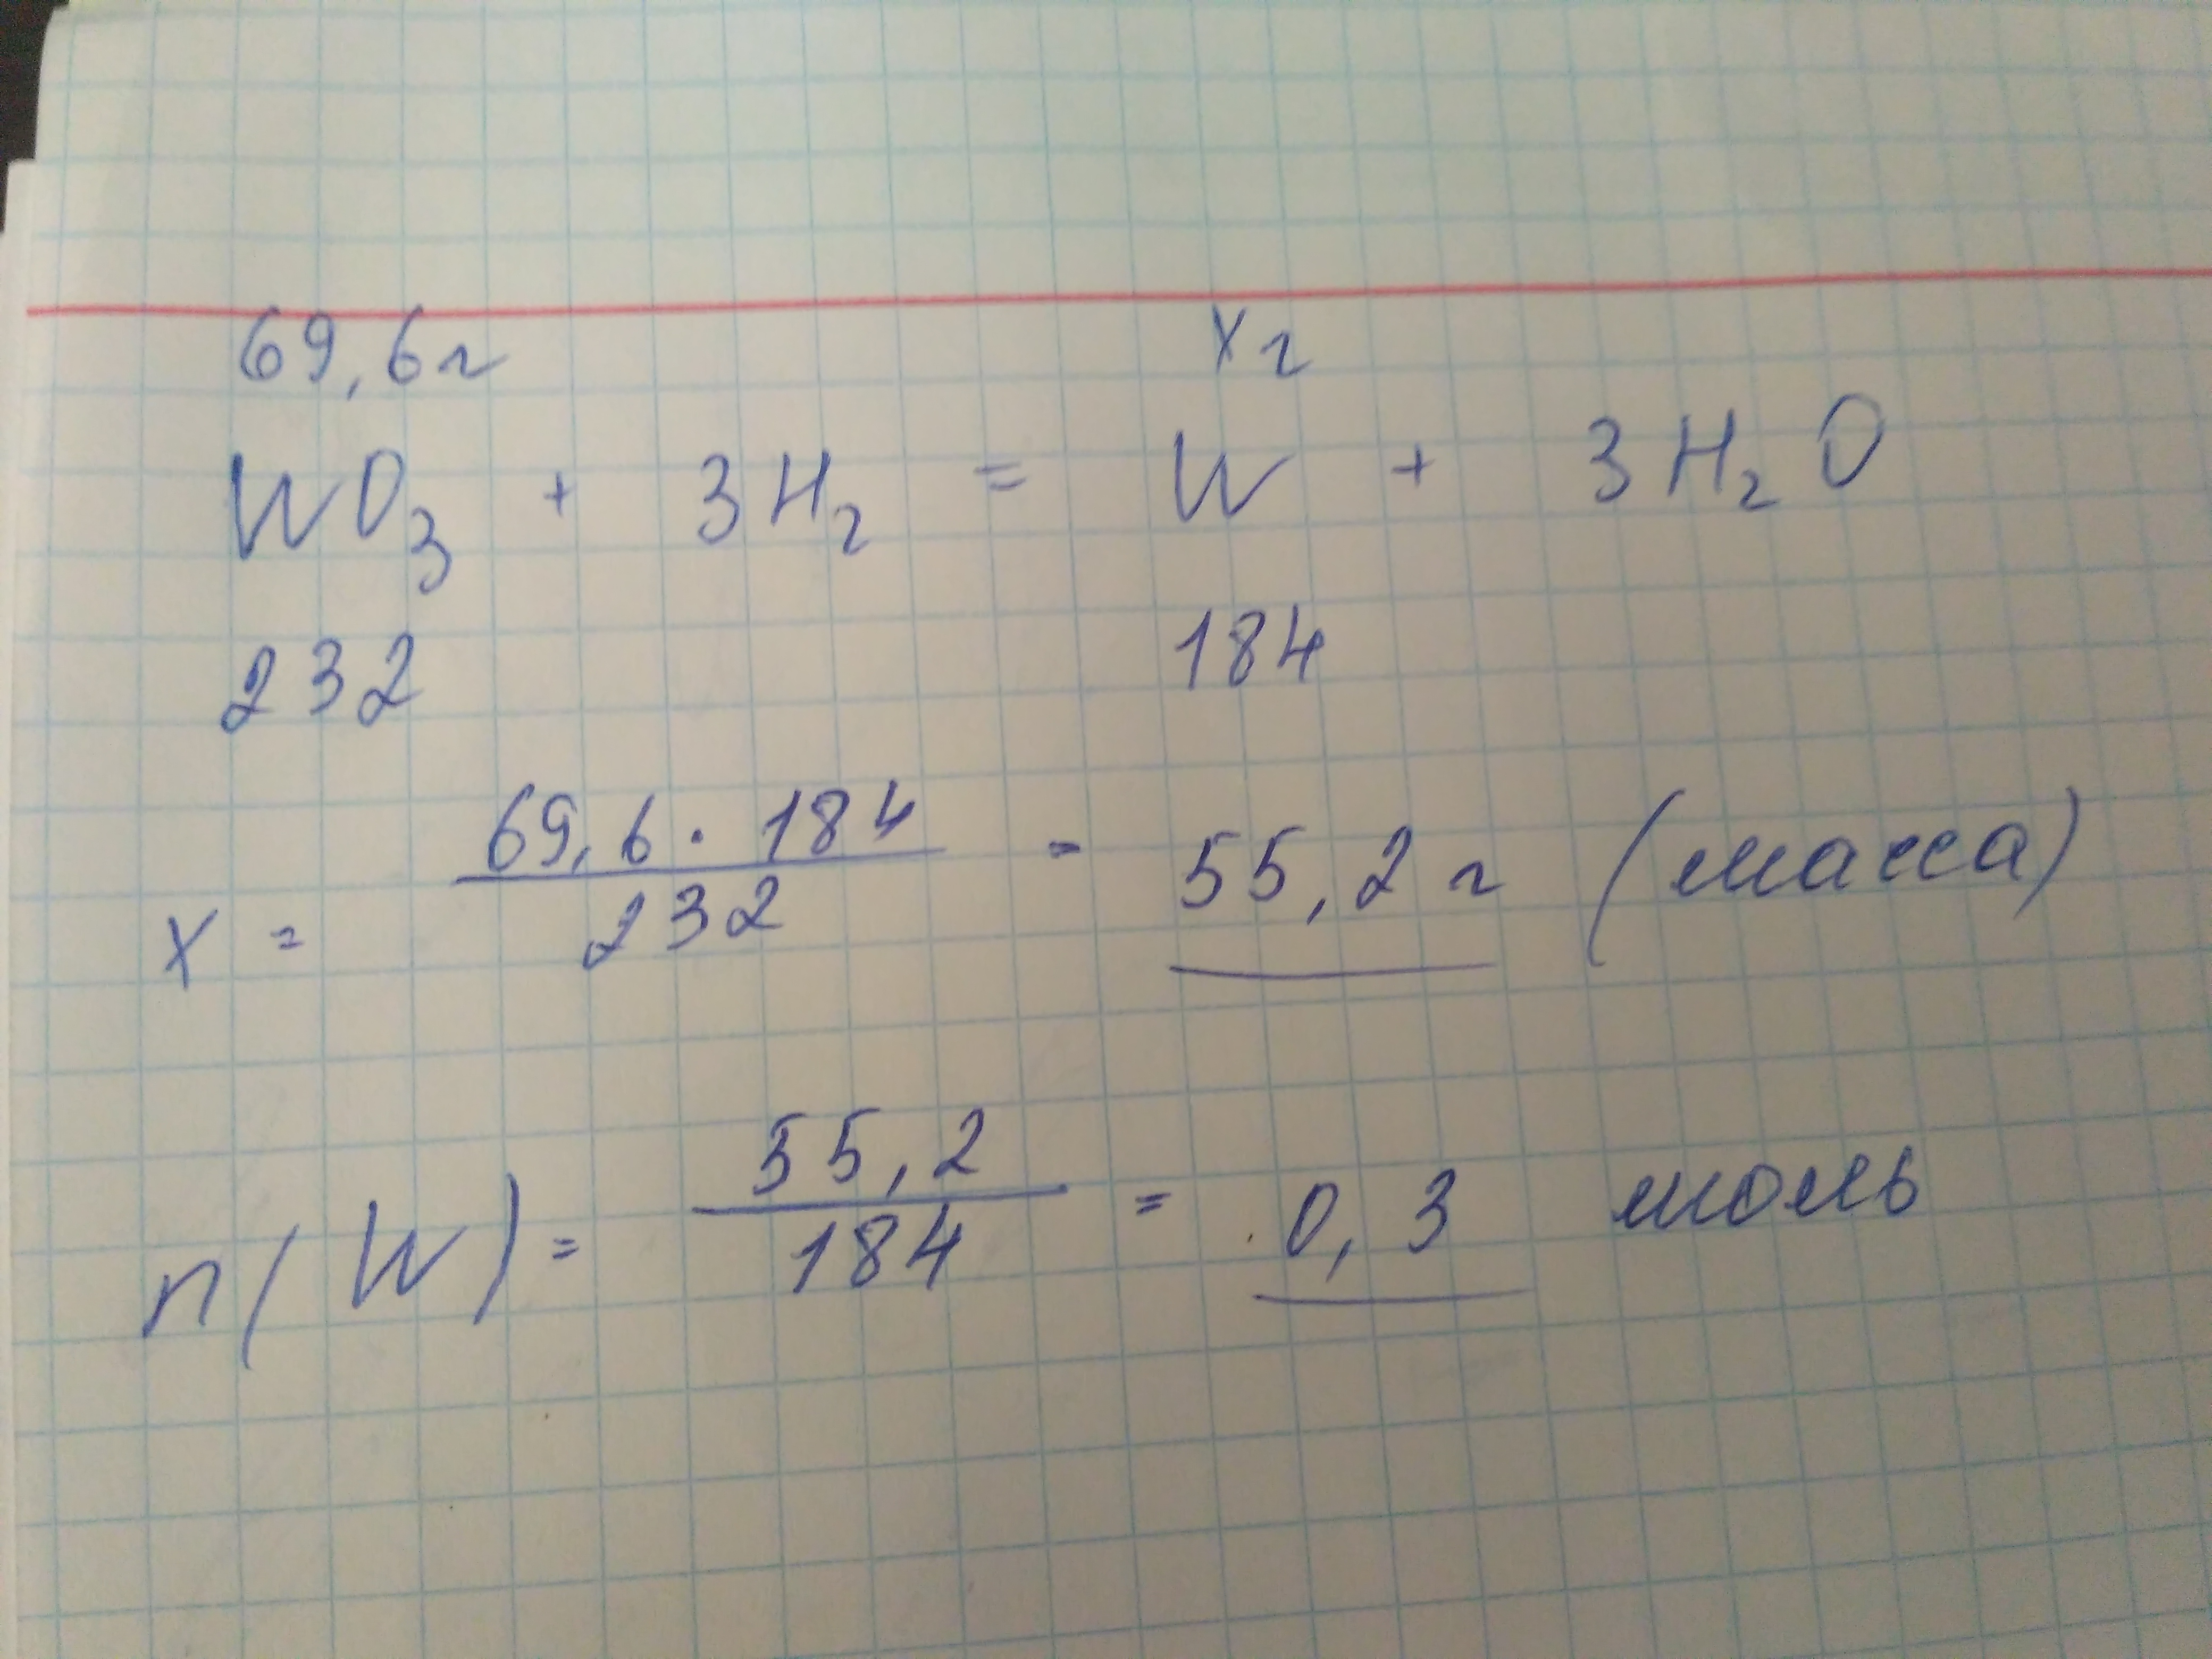 69,6г xг
WO₃ + 3H₂ = W + 3H₂O
232 184
x = 69,6 · 184 / 232 = 55,2 г (масса)
n(W) = 55,2 / 184 = 0,3 моль